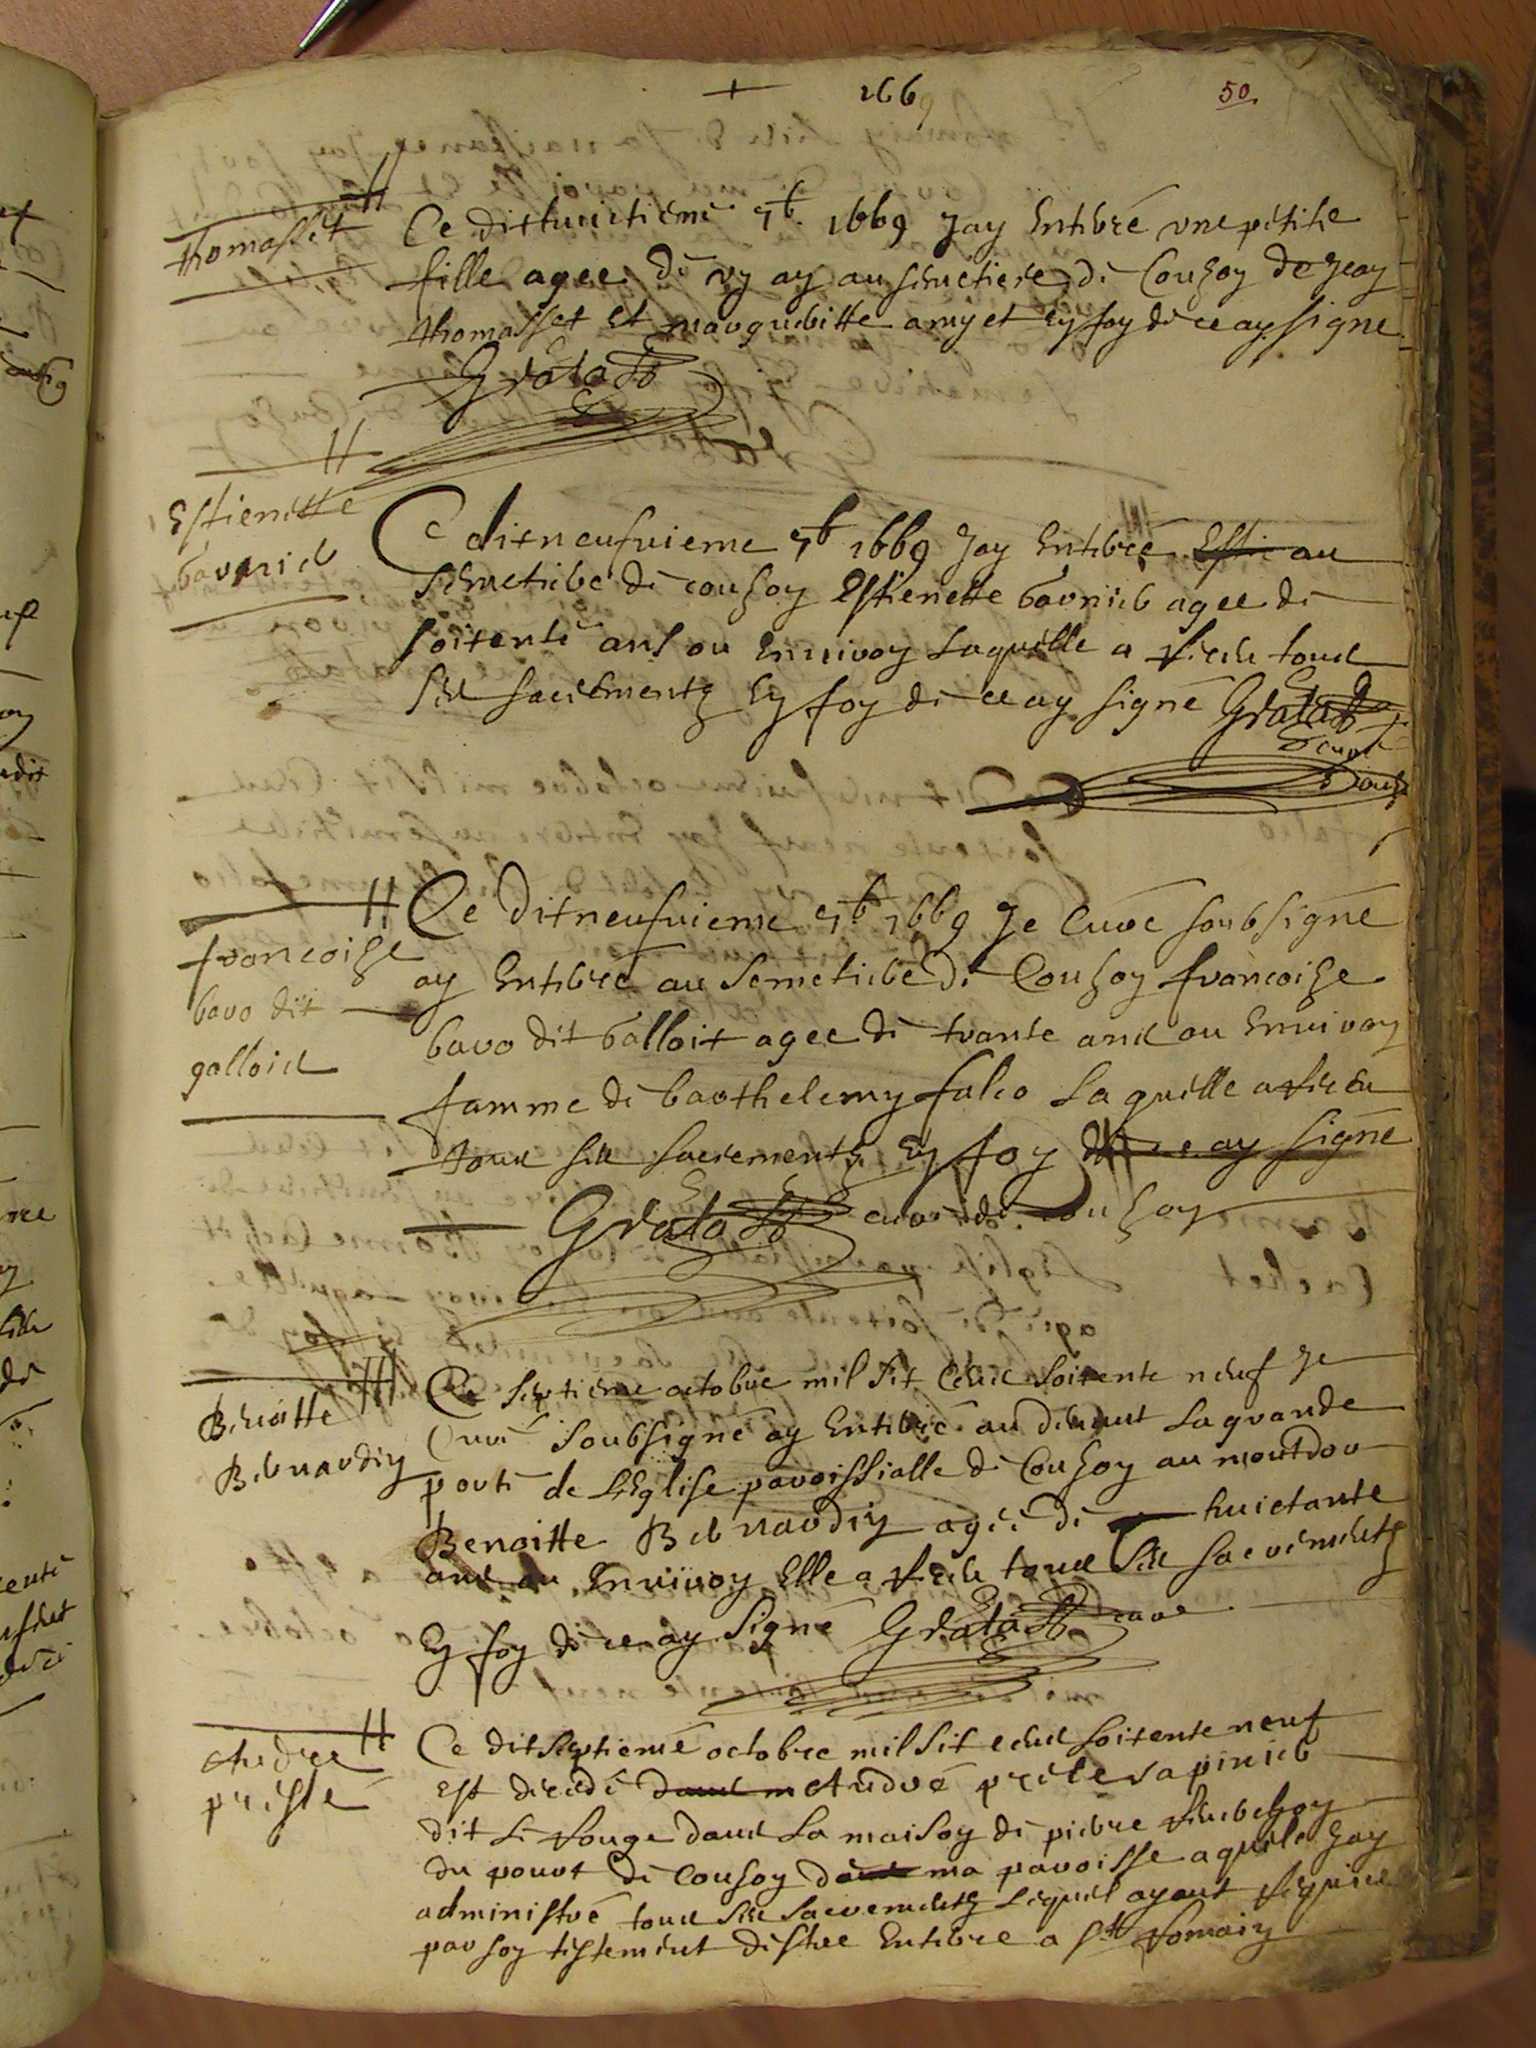 1669
50
thomasset
Ce dit huictieme 7b. 1669 Jay Enterré une petite
fille agee de un an au semetiere de Couzon de Jean
thomasset et margueritte amy et en foy de ce ay signe
Gratasb
Estienette
barnier
Ce dit neufvieme 7b 1669 Jay Enterré Estie au
Semetiere de couzon Estienette barnier agee de
soitente ans ou Enviroy Laquelle a Receu tous
ses sacrements En foy de ce ay signé Gratasb
Curé
françoise
baro dit
gallois
Ce dit neufvieme 7b 1669 Je Curé soubsigné
ay Enterré au Semetiere de Couzon francoise
baro dit galloit agee de trante ans ou Enviroy
famme de barthelemy falco Laquelle a Receu
tous ses sacrements En foy de ce ay signé
Gratasb curé de couzon
Benoitte
Bernardin
Ce septieme octobre mil sit cens soitente neuf Je
Curé soubsigné ay Enterré au devant La grande
porte de L'Eglise paroissialle de Couzon au montdor
Benoitte Bernardin agée de huictante
ans ou Enviroy Elle a Receu tous ses sacrements
En foy de ce ay signé Gratasb curé
Andree
presle
Ce dit septieme octobre mil sit cens soitente neuf
est decedé dans m André presle rapinier
dit Le Rouge dans La maison de pierre
du pourt de Couson de ma paroisse a quile Jay
administré tous ses sacrements Lequel ayant Requis
par son testement destre Enterre a St Romain